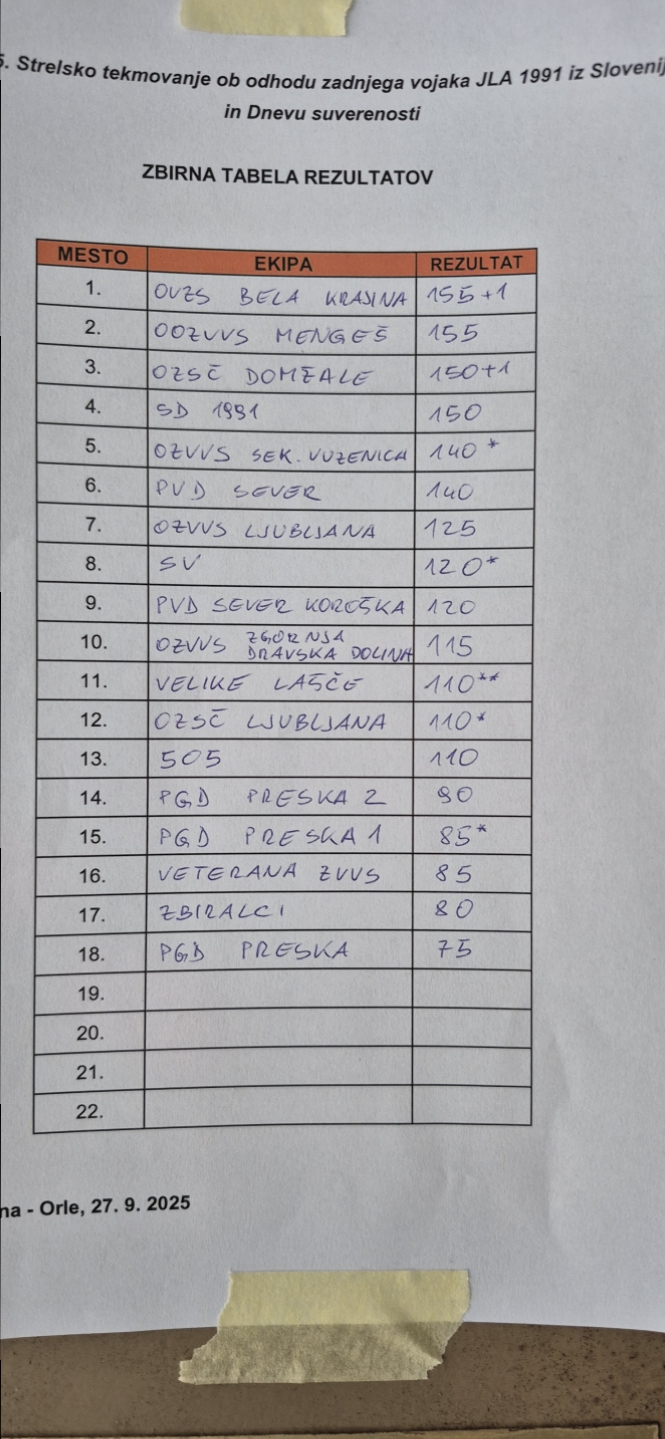 5. Strelsko tekmovanje ob odhodu zadnjega vojaka JLA 1991 iz Slovenij
in Dnevu suverenosti
ZBIRNA TABELA REZULTATOV
MESTO EKIPA REZULTAT
1. OVZS BELA KRAJINA 155+1
2. OOZVVS MENGEŠ 155
3. OZSČ DOMŽALE 150+1
4. SD 1991 150
5. OZVVS SEK. VUZENICA 140*
6. PVD SEVER 140
7. OZVVS LJUBLJANA 125
8. SV 120*
9. PVD SEVER KOROŠKA 120
10. OZVVS ZGORNJA DRAVSKA DOLINA 115
11. VELIKE LAŠČE 110**
12. OZSČ LJUBLJANA 110*
13. 505 110
14. PGD PRESKA 2 90
15. PGD PRESKA 1 85*
16. VETERANA ZVVS 85
17. ZBIRALCI 80
18. PGD PRESKA 75
19.
20.
21.
22.
na - Orle, 27. 9. 2025